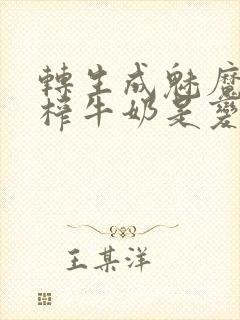 轉生成魅魔
榨牛奶是變
王某洋